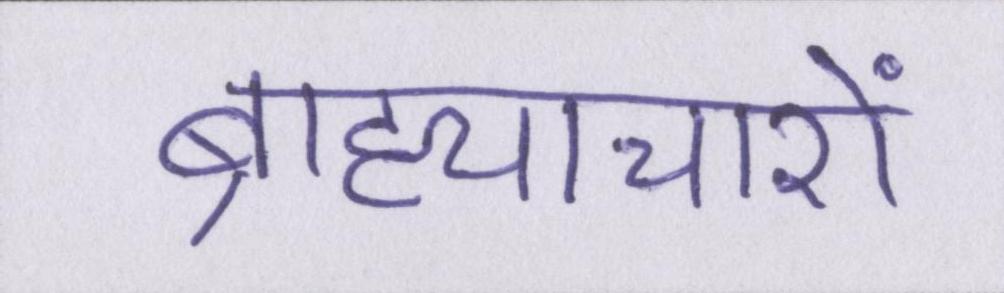 ब्राह्याचारों